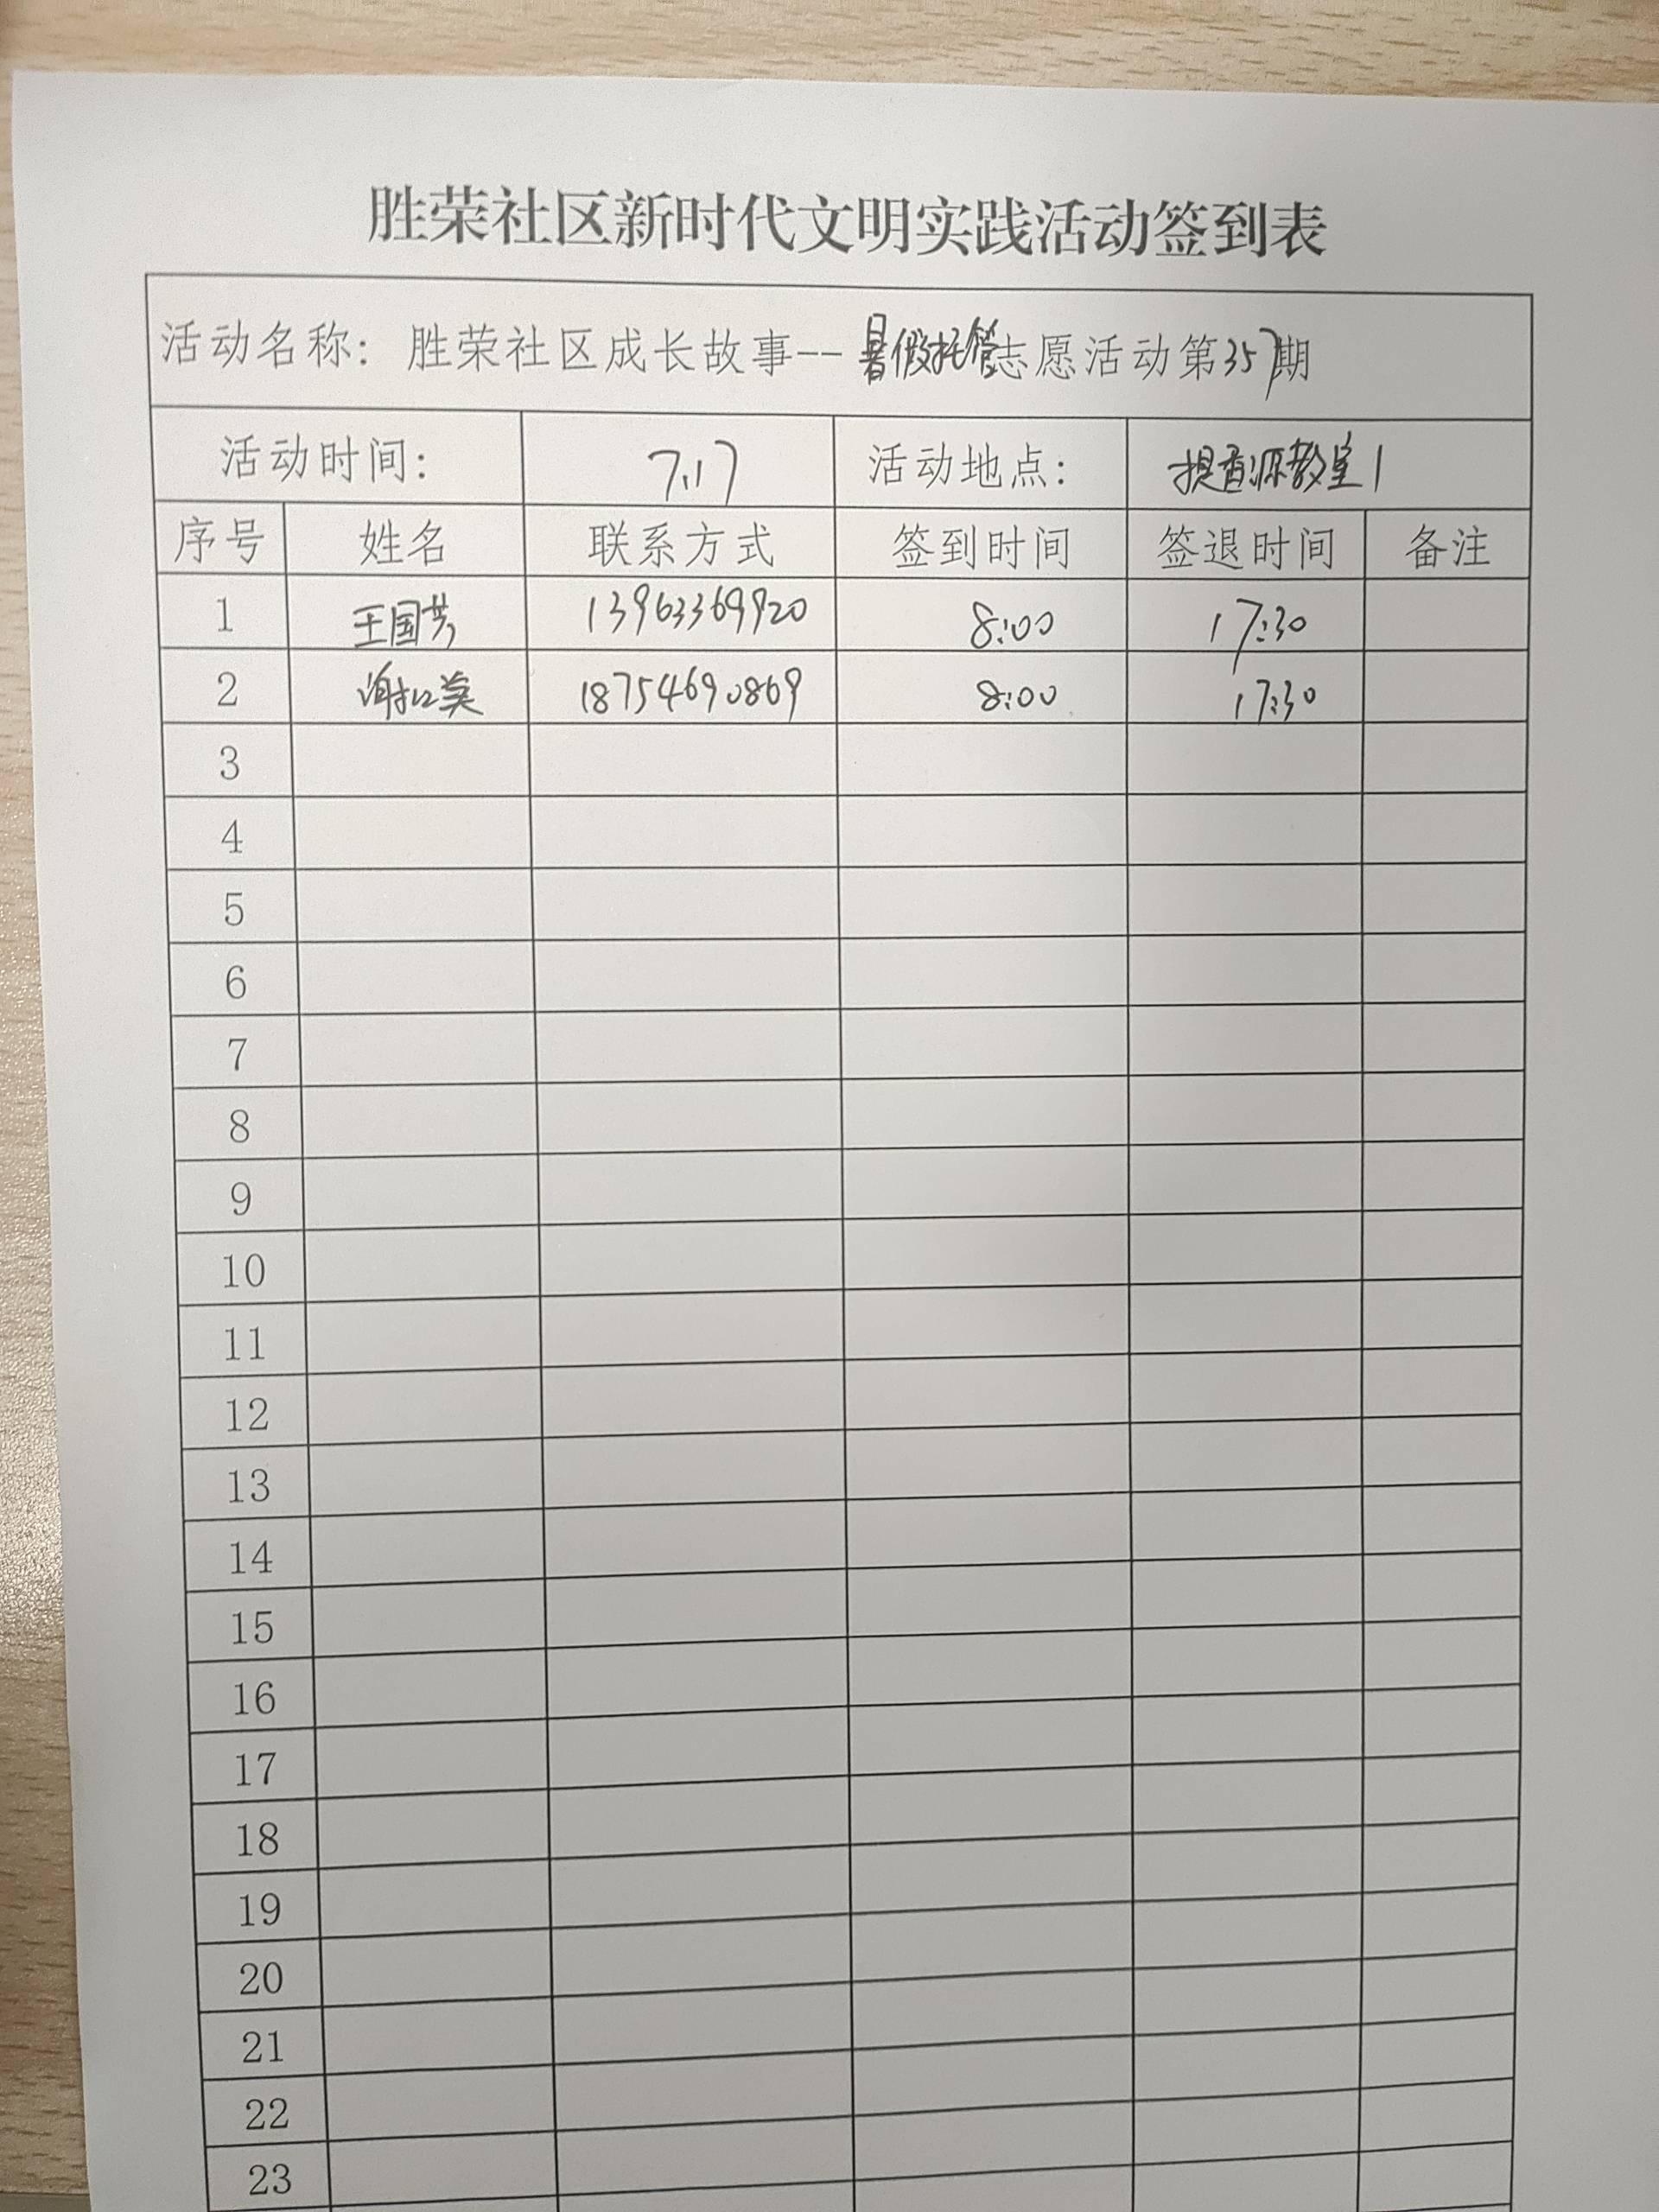 胜荣社区新时代文明实践活动签到表
活动名称：胜荣社区成长故事--暑假托管志愿活动第357期
活动时间： 7.17 活动地点： 提香源教室1
序号 姓名 联系方式 签到时间 签退时间 备注
1 王国芳 13963369920 8:00 17:30
2 18754690869 8:00 17:30
3
4
5
6
7
8
9
10
11
12
13
14
15
16
17
18
19
20
21
22
23